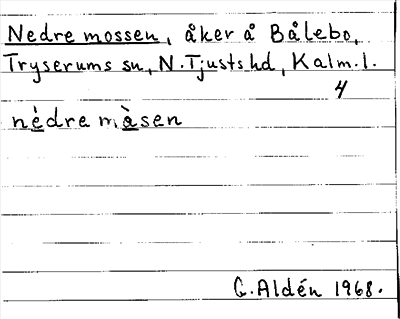 Nedre mossen, åker å Bålebo,
Tryserums sn, N. Tjusts hd, Kalm. l.
4
nèdre màsen
G. Aldén 1968.